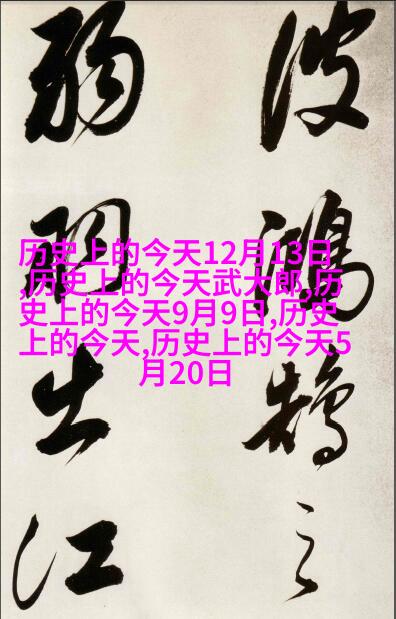 波鴻鵠之
弱羽出江
历史上的今天12月13日
,历史上的今天武大郎,历
史上的今天9月9日,历史
上的今天,历史上的今天5
月20日